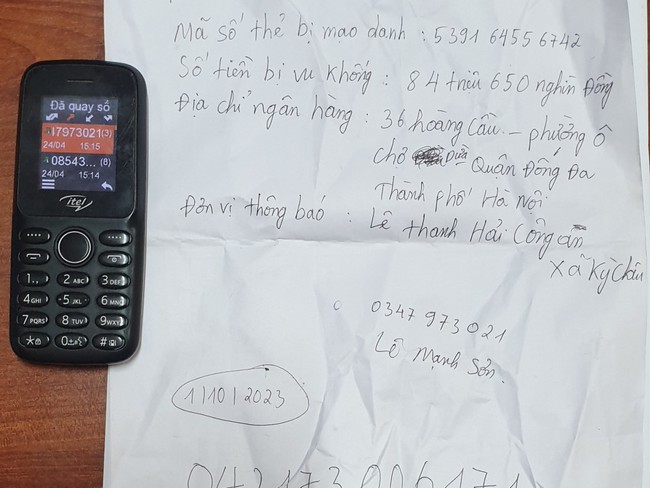 Đã quay số
47973021(3)
24/04 15:15
08543... (8)
24/04 15:14
itel
1.,
2 ABC
3 DEF
4 GHI
5 JKL
6 MNO
7 PQRS
8 TUV
9 WXYZ
*
0
#
Mã số thẻ bị mạo danh : 5391 6455 6742
Số tiền bị vu khống : 84 triệu 650 nghìn Đồng
Địa chỉ ngân hàng : 36 hoàng Cầu - phường ô
chợ Dừa Quận Đống Đa
Thành phố Hà Nội
Đơn vị thông báo : Lê Thanh Hải Công an
xã Kỳ Châu
0347 973 021
Lê Mạnh Sơn.
1/10/2023